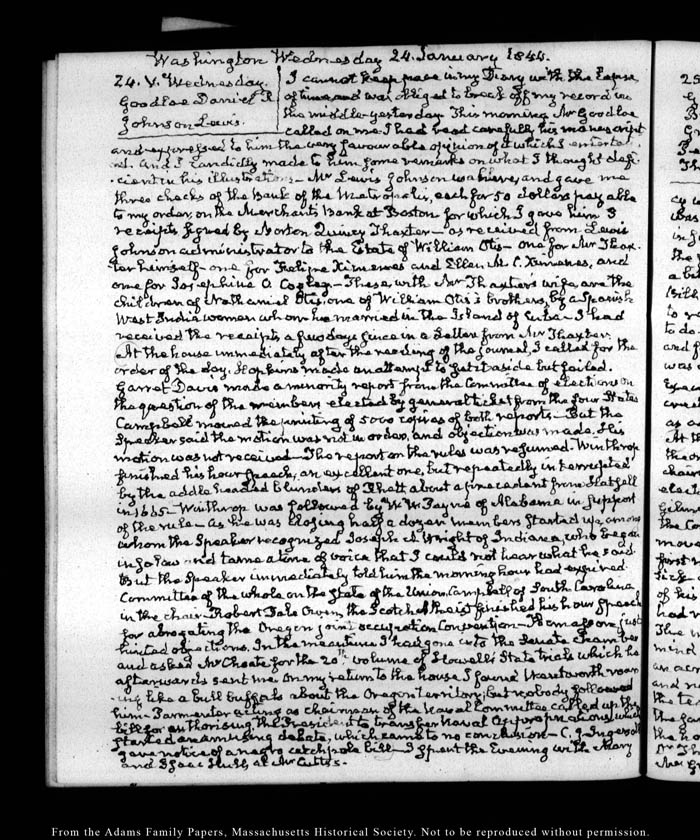 Washington Wednesday 24. January 1844.
24. V. Wednesday.
Goodloe Daniel R
Johnson Lewis.
I cannot keep pace in my Diary with the lapse
of time and was obliged to break off my record in
the middle yesterday. This morning Mr Goodloe
called on me. I had read carefully his manuscript
and expressed to him the very favourable opinion of it which I enterta
And I candidly made to him some remarks on what I thought defi-
cient in his illustrations. Mr Lewis Johnson was here, and gave me
three checks of the Bank of the Metropolis, each for 50 dollars payable
to my order, on the Merchants Bank at Boston for which I gave him 3
receipts signed by Norton Quincy Thaxter as received from Lewis
Johnson administrator to the Estate of William Otis one for Mr Thax-
ter himself one for Felipe Ximenes and Ellen M. C. Ximenes, and
one for Josephine A Copley These, with Mr Thaxters wife are the
children of Nathaniel Otis, one of William Otis's brothers, by a Spanish
West India woman whom he married in the Island of Cuba I had
received the receipts a few days since in a Letter from Mr Thaxter.
At the house immediately after the reading of the journal, I called for the
order of the day. Hopkins made an attempt to set it aside but failed.
Garrot Davis made a minority report from the Committee of elections on
the question of the members elected by general ticket from the four States
Campbell moved the printing of 5000 copies of both reports But the
Speaker said the motion was not in order, and objection was made. His
motion was not received The report on the rules was resumed. Winthrop
finished his hour speech, an excellent one, but repeatedly interrupted
by the addle headed blunders of Rhett about a precedent from Hatsell
in 1665 Winthrop was followed by W. W. Payne of Alabama in support
of the rule as he was closing half a dozen members started up, among
whom the Speaker recognized Joseph A Wright of Indiana, who began
in so low and tame a tone of voice that I could not hear what he said.
But the Speaker immediately told him the morning hour had expired.
Committee of the whole on the State of the Union. Campbell of South Carolina
in the chair. Robert Dale Owen, the Scotch Atheist finished his hour speech
for abrogating the Oregon joint occupation Convention just
hinted objections. In the meantime I had gone into the Senate Chamber
and asked Mr Choate for the 20th volume of Howell's State trials which he
afterwards sent me. On my return to the house I found Wentworth roar-
ing like a bull buffalo about the Oregon territory; but nobody followed
him. Parmenter acting as chairman of the Naval Committee called up the
bill for authorising the President to transfer Naval Appropriations, which
started an amusing debate, which came to no conclusion C. J. Ingersoll
gave notice of a negro catchpole bill I spent the Evening with Mary
and Isaac Hull, at Mr Cutts's.
From the Adams Family Papers, Massachusetts Historical Society. Not to be reproduced without permission.